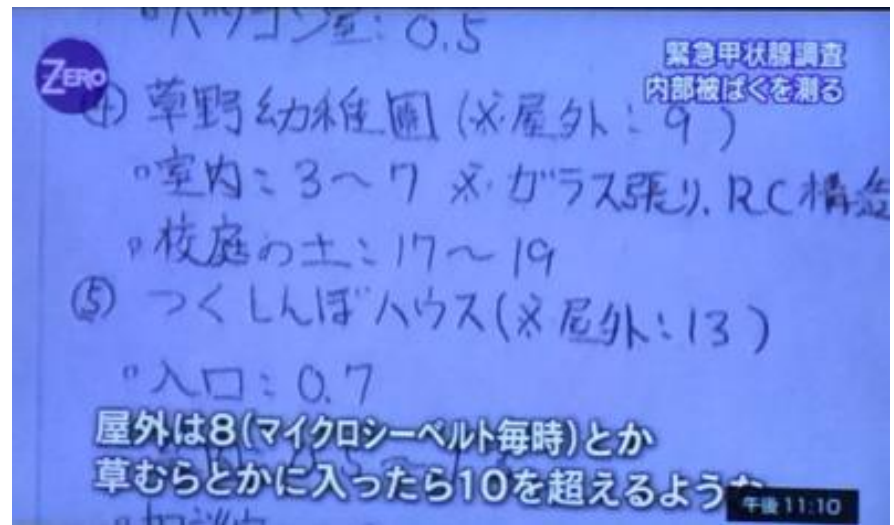 パソコン室: 0.5
ZERO
緊急甲状腺調査
内部被ばくを測る
④ 草野幼稚園 (※屋外: 9)
室内: 3～7 ※ガラス張り、RC構造
校庭の土: 17～19
⑤ つくしんぼハウス (※屋外: 13)
入口: 0.7
屋外は8(マイクロシーベルト毎時)とか
草むらとかに入ったら10を超えるような
午後 11:10